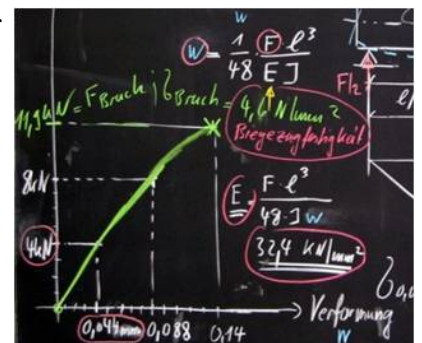 w
w = 1/48 · F l³ / E J
F/2
11,9 kN = F Bruch ; σ Bruch = 4,6 N/mm²
Biegezugfestigkeit
8kN
E = F · l³ / 48 · J w
4kN
32,4 KN/mm²
0,044mm 0,088 0,14
Verformung
w